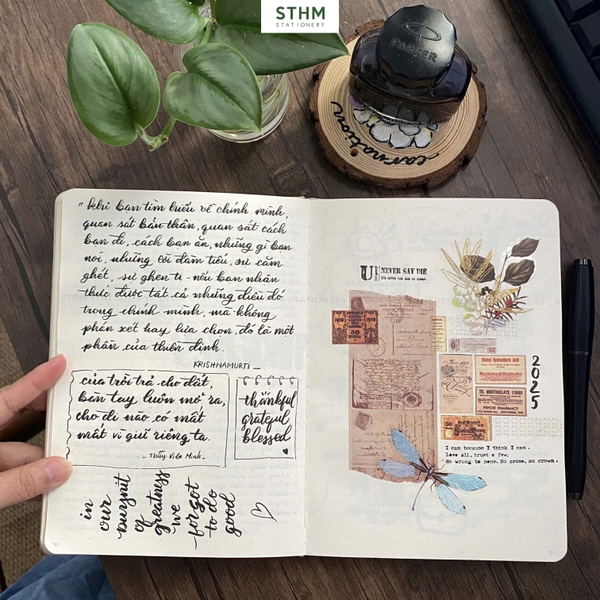 STHM
STATIONERY
PARKER
carnation
"khi bạn tìm hiểu về chính mình,
quan sát bản thân, quan sát cách
bạn đi, cách bạn ăn, những gì bạn
nói, những lời đàm tiếu, sự căm
ghét, sự ghen tị - nếu bạn nhận
thức được tất cả những điều đó
trong chính mình, mà không
phán xét hay lựa chọn, đó là một
phần của thiền định.
KRISHNAMURTI —
của trời trả cho đất,
bàn tay luôn mở ra,
cho đi nào có mất
mất vì giữ riêng ta.
- Thủy Viên Minh.
thankful
grateful
blessed
in
our
pursuit
of
greatness
we
forgot
to do
good
NEVER SAY DIE
2025
PRYOR PHARMACY
I can because I think I can.
Love all, trust a few.
do wrong to none. No cross, no crown.